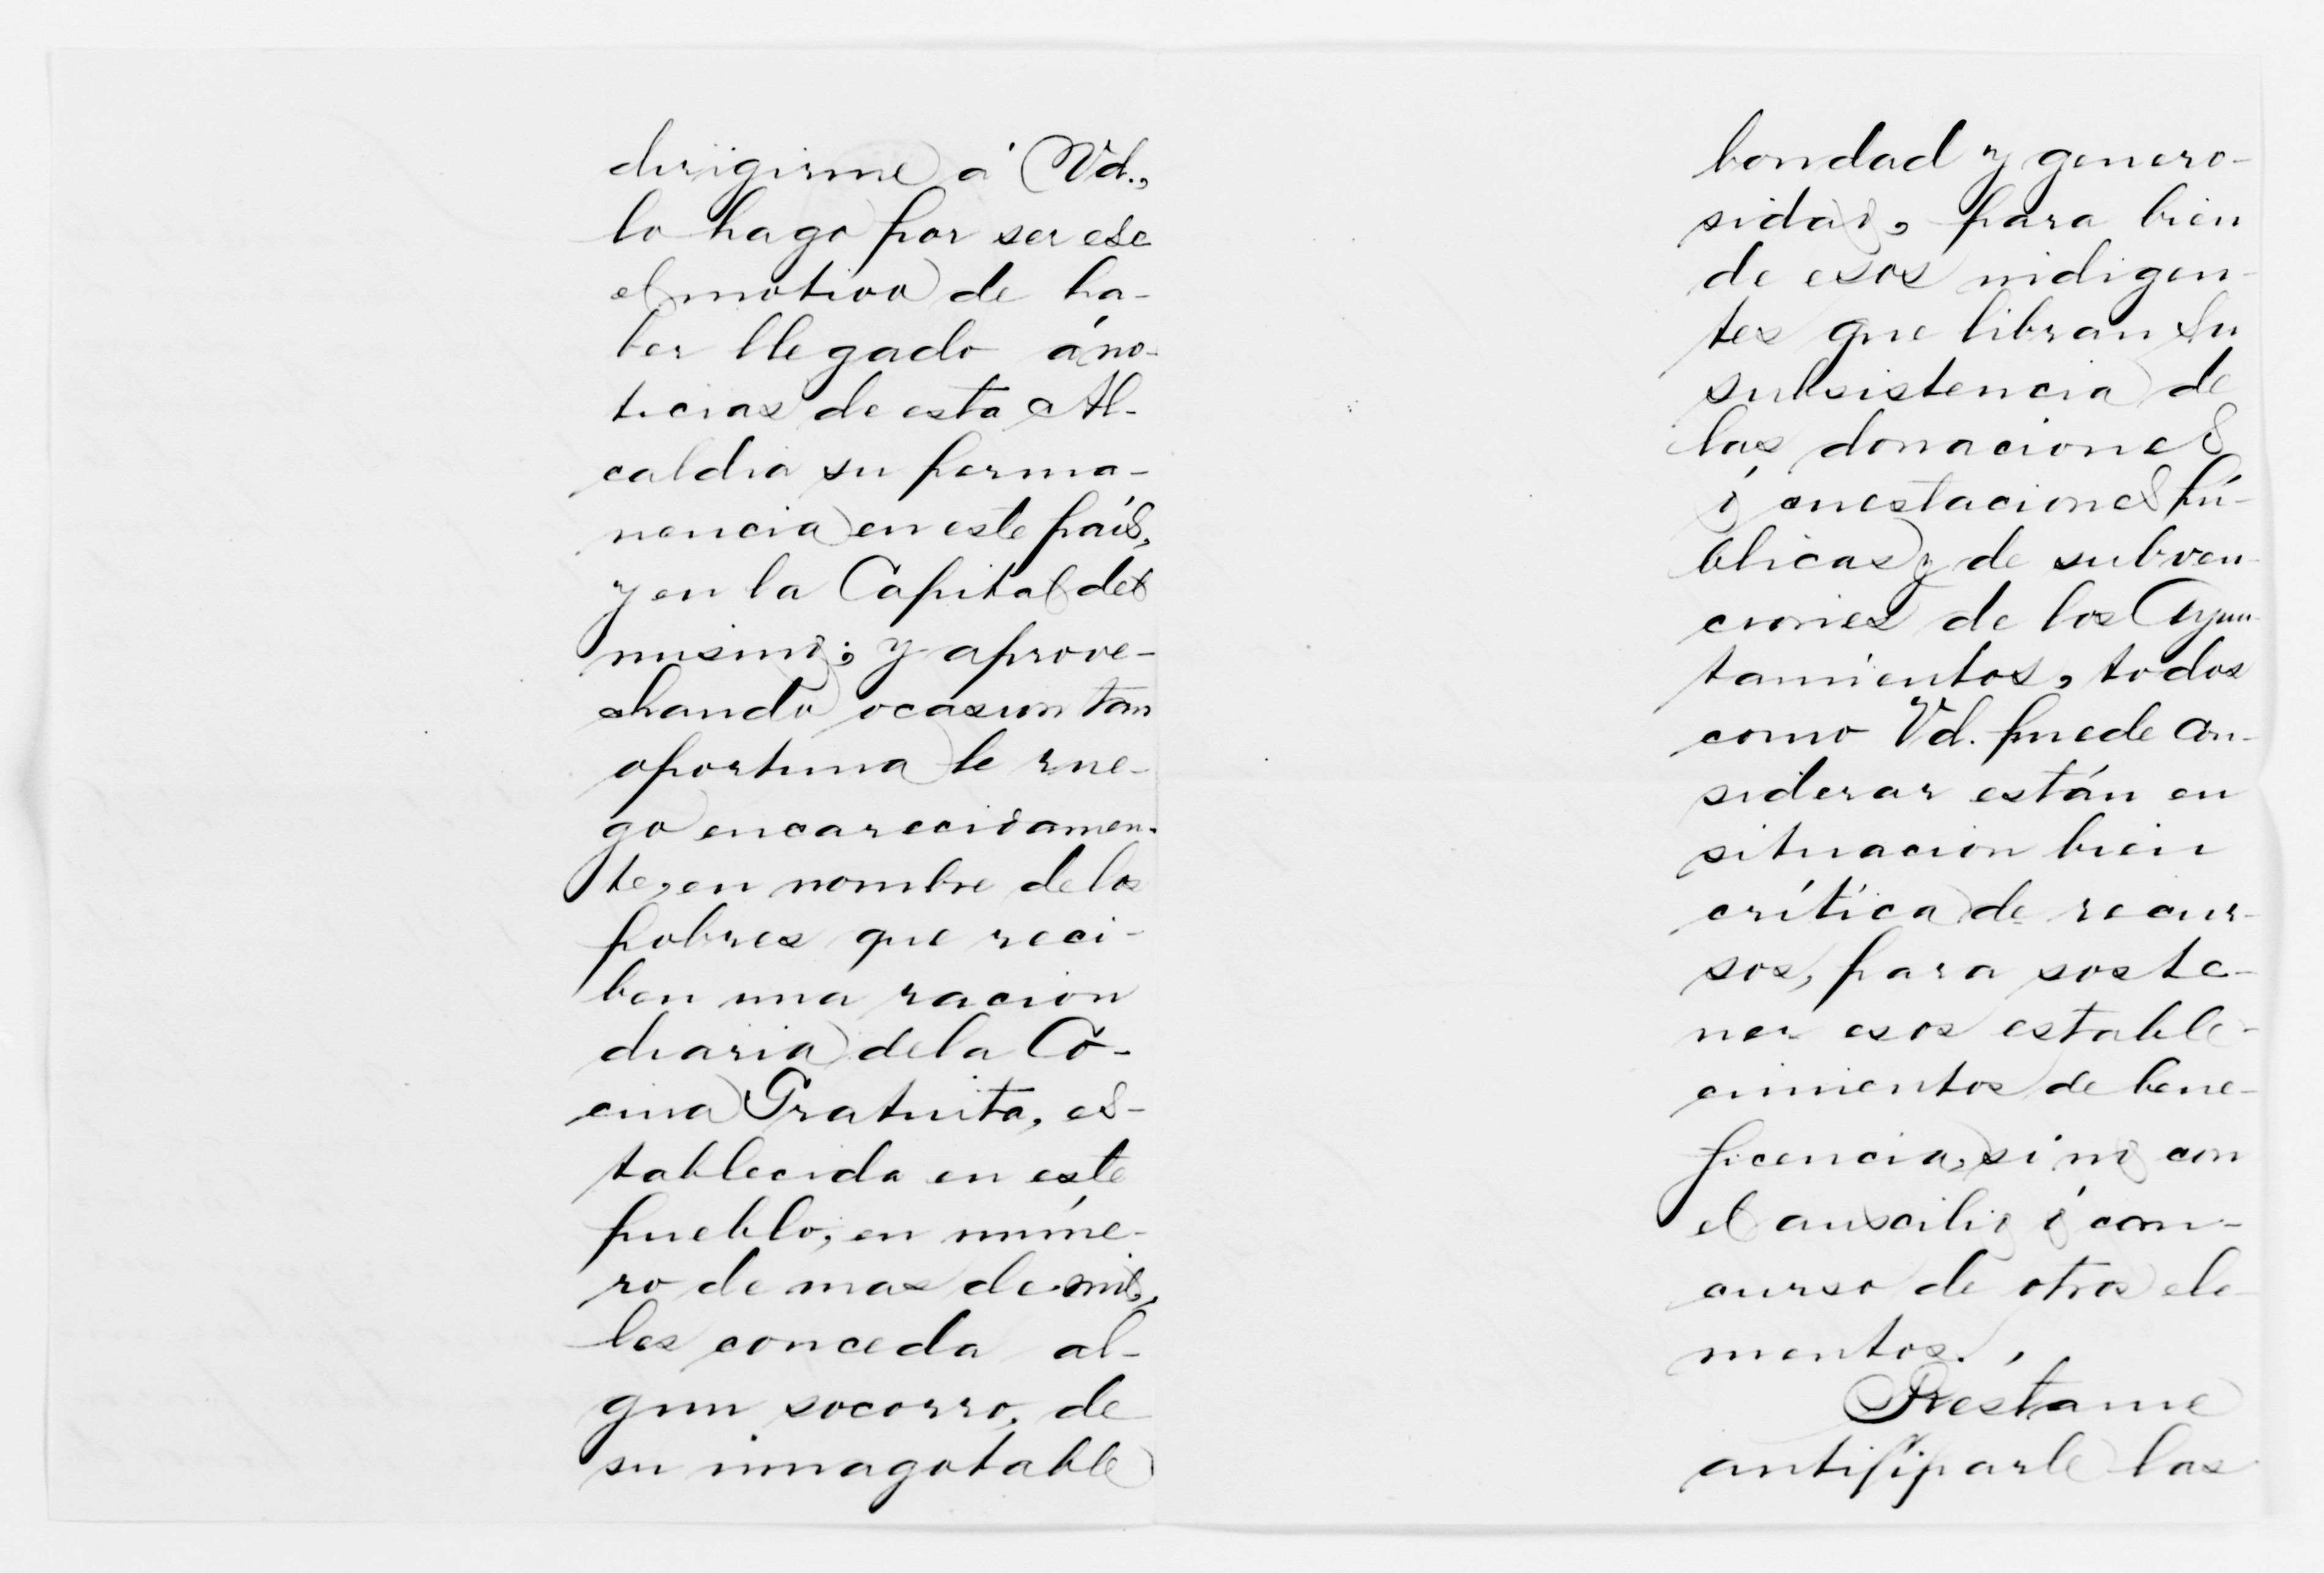 dirigirme á Vd.,
lo hago por ser ese
el motivo de ha-
ber llegado áno-
ticias de esta Al-
caldia su perma-
nencia en este país,
y en la Capital del
mismo; y aprove-
chando ocasion tan
oportuna le rue-
go encarecidamen-
te, en nombre de los
pobres que reci-
ben una racion
diaria de la Co-
cina Gratuita, es-
tablecida en este
pueblo, en núme-
ro de mas de mil,
les conceda al-
gun socorro, de
su innagotable
bondad y genero-
sidad, para bien
de esos indigen-
tes que libran su
subsistencia de
las donaciones
ó cuestaciones pú-
blicas y de subven-
ciones de los Ayun-
tamientos, todos
como Vd. puede con-
siderar están en
situacion bien
crítica de recur-
sos, para soste-
ner esos estable-
cimientos de bene-
ficencia, si nó con
el auxcilio ó con-
curso de otros ele-
mentos.
Réstame
antisiparle las